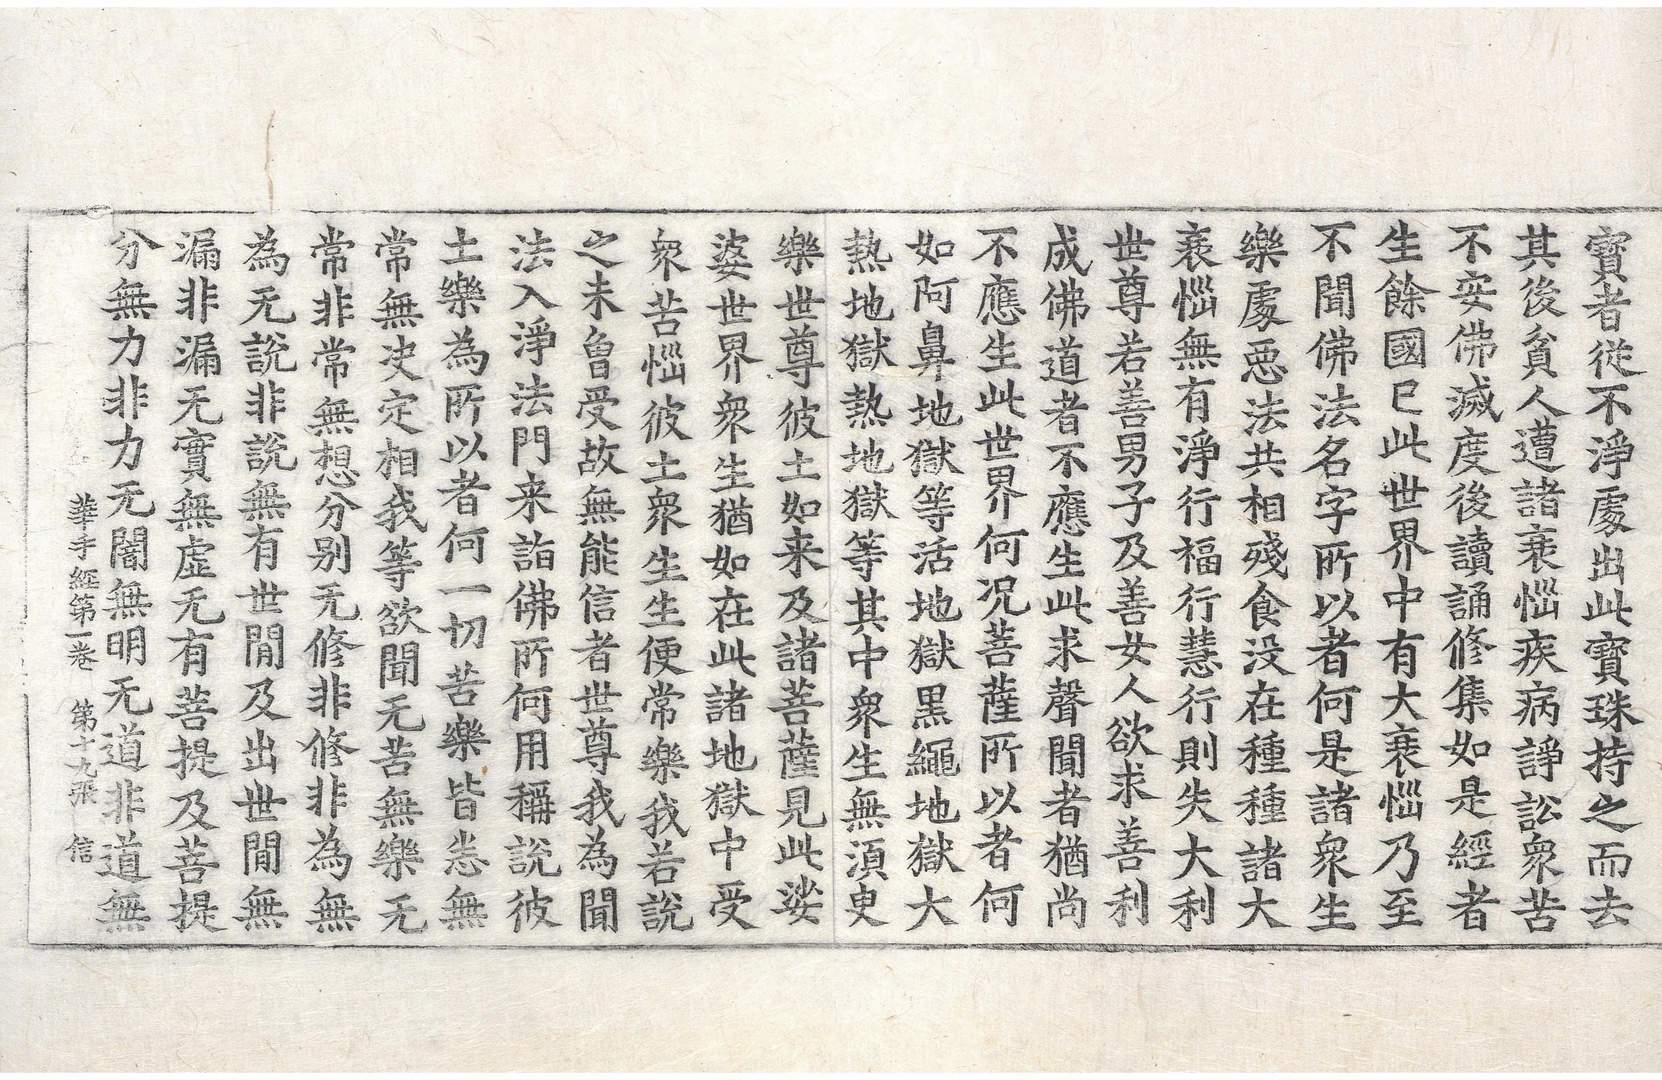 寳者從不淨處出此寳珠持之而去
其後貧人遭諸衰惱疾病諍訟衆苦
不安佛滅度後讀誦修集如是經者
生餘國已此世界中有大衰惱乃至
不聞佛法名字所以者何是諸衆生
樂處惡法共相殘食没在種種諸大
衰惱無有淨行福行慧行則失大利
世尊若善男子及善女人欲求善利
成佛道者不應生此求聲聞者猶尚
不應生此世界何況菩薩所以者何
如阿鼻地獄等活地獄黒繩地獄大
熱地獄熱地獄等其中衆生無湏臾
樂世尊彼土如来及諸菩薩見此娑
婆世界衆生猶如在此諸地獄中受
衆苦惱彼土衆生生便常樂我若說
之未曽受故無能信者世尊我為聞
法入淨法門来詣佛所何用稱說彼
土樂為所以者何一切苦樂皆悉無
常無决定相我等欲聞无苦無樂无
常非常無想分别无修非修非為無
為无說非說無有世閒及出世閒無
漏非漏无實無虛无有菩提及菩提
分無力非力无闇無明无道非道無
華手經第一卷 第十九張 信